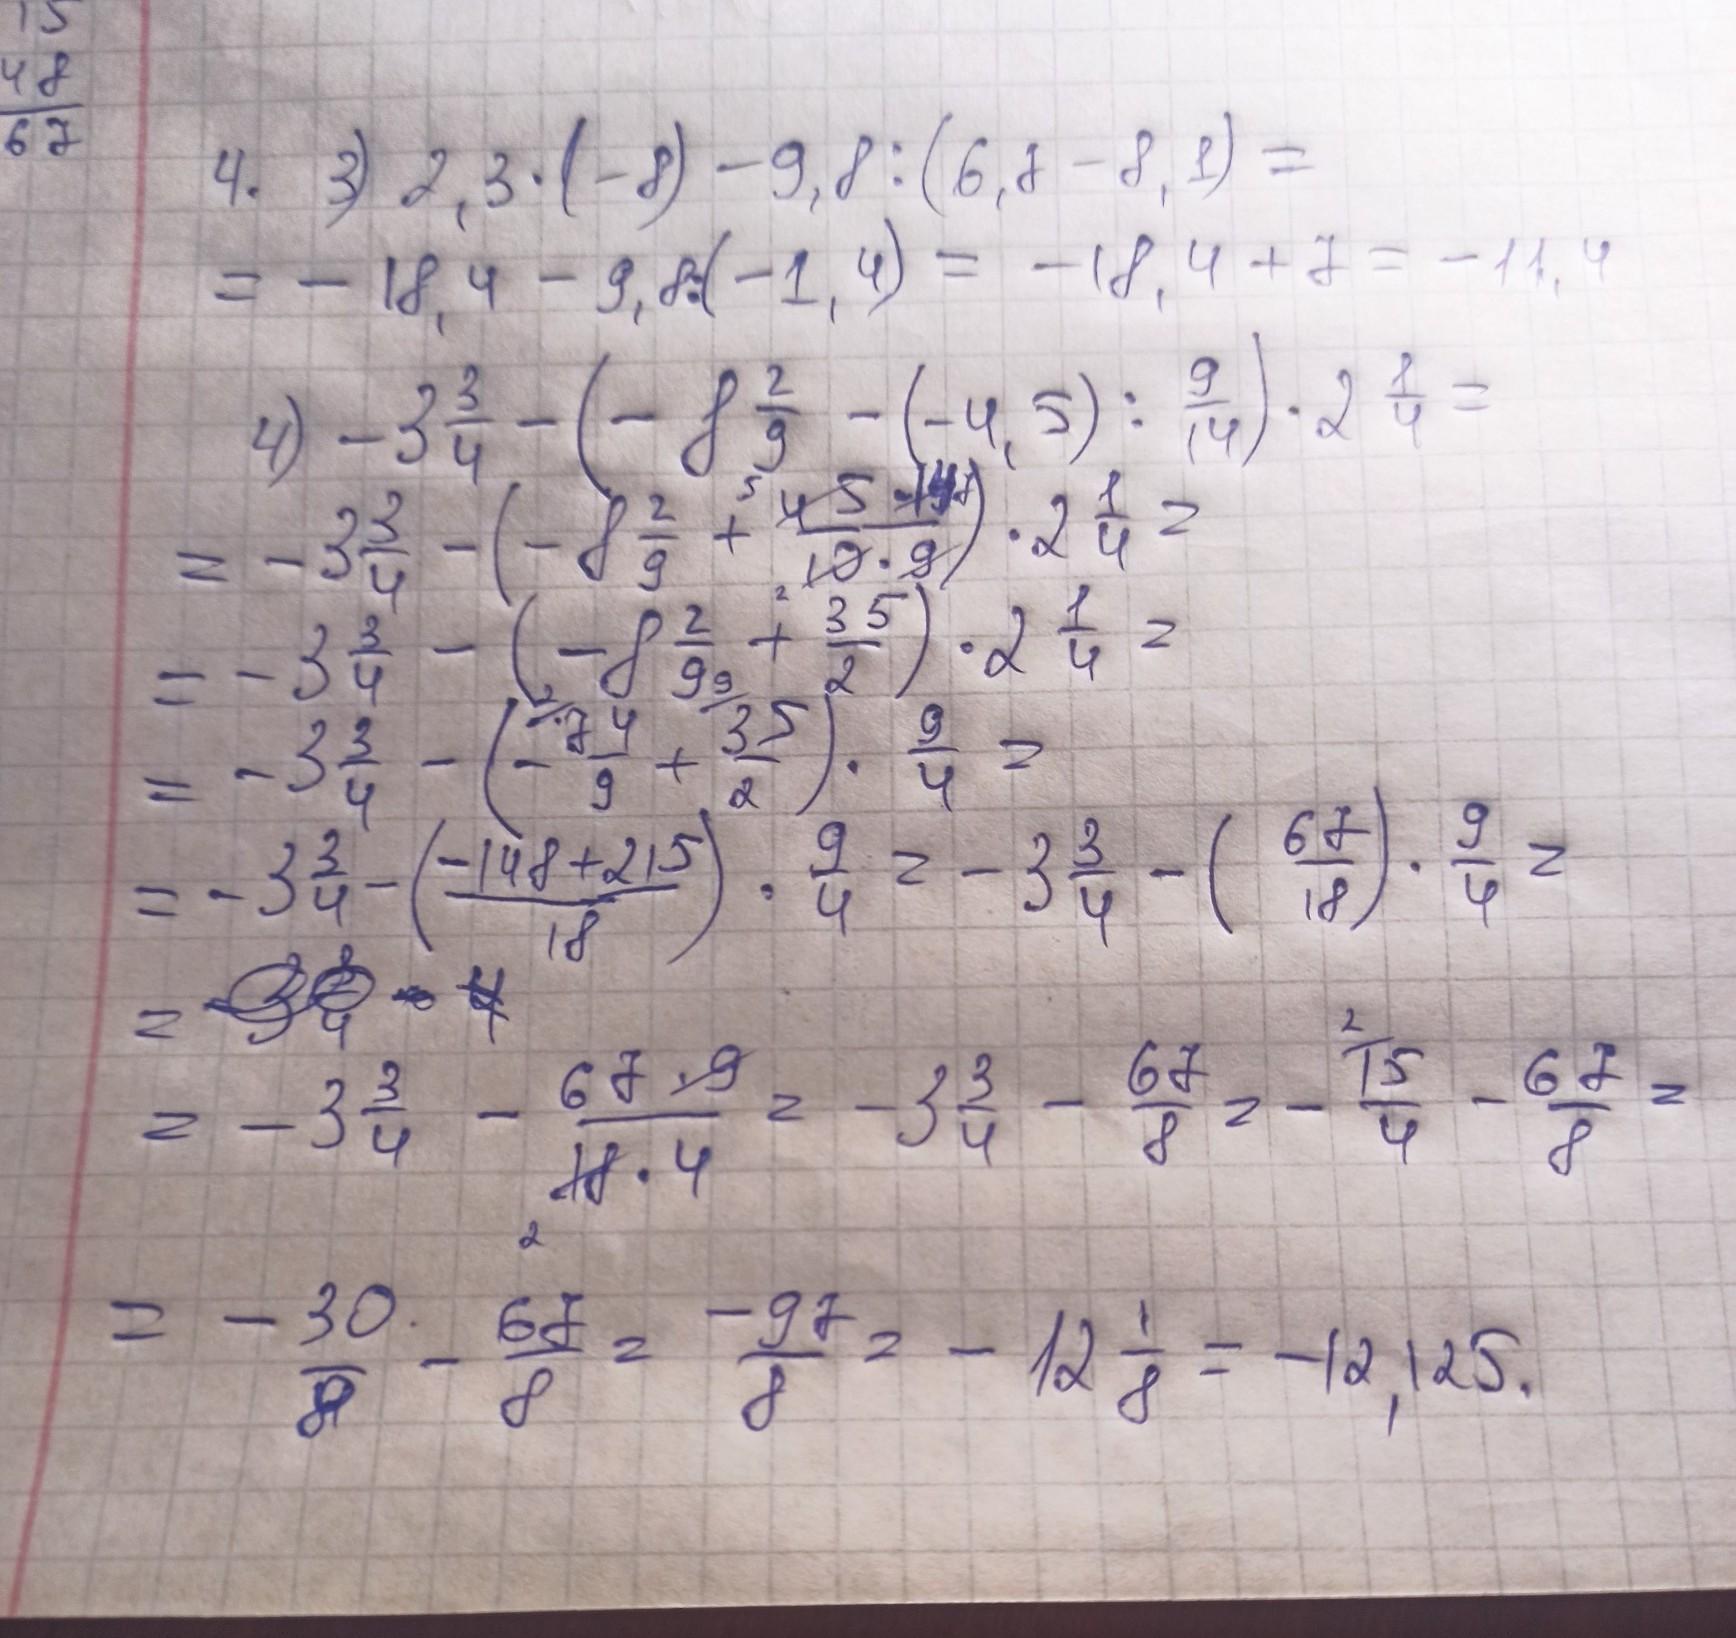 15
48
67
4. 3) 2,3·(-8) - 9,8:(6,7 - 8,1) =
= - 18,4 - 9,8:(-1,4) = -18,4 + 7 = -11,4
4) -3 3/4 - (- 8 2/9 - (-4,5) : 9/14) · 2 1/4 =
= -3 3/4 - (-8 2/9 + 45·14/10·9) · 2 1/4 =
= -3 3/4 - (-8 2/9 + 35/2) · 2 1/4 =
= -3 3/4 - (- 74/9 + 35/2) · 9/4 =
= -3 3/4 - (-148+215/18) · 9/4 = -3 3/4 - (67/18) · 9/4 =
=
= -3 3/4 - 67·9/18·4 = -3 3/4 - 67/8 = - 15/4 - 67/8 =
= - 30/8 - 67/8 = -97/8 = - 12 1/8 = -12,125.